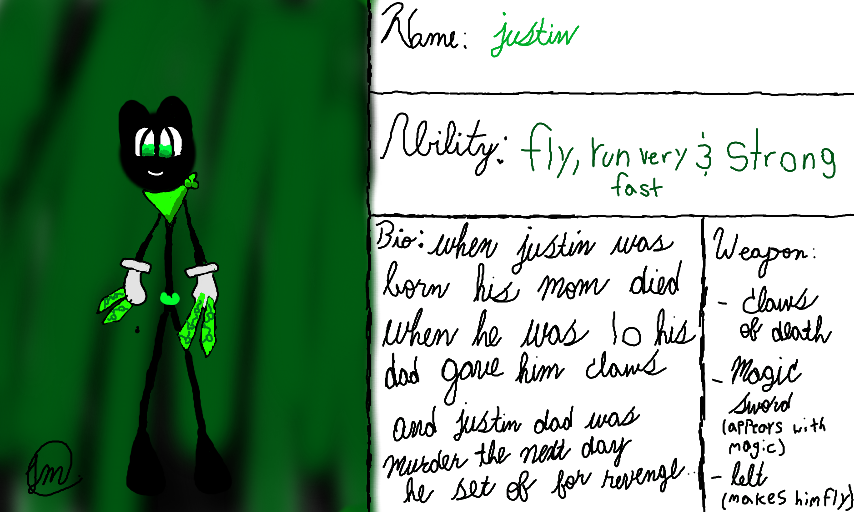 Name: justin
Ability: fly, run very & strong
fast
Bio: when justin was
born his mom died
when he was 10 his
dad gave him claws
and justin dad was
murder the next day
he set of for revenge...
Weapon:
- claws
of death
- Magic
sword
(appears with
magic)
- belt
(makes him fly)
Jm